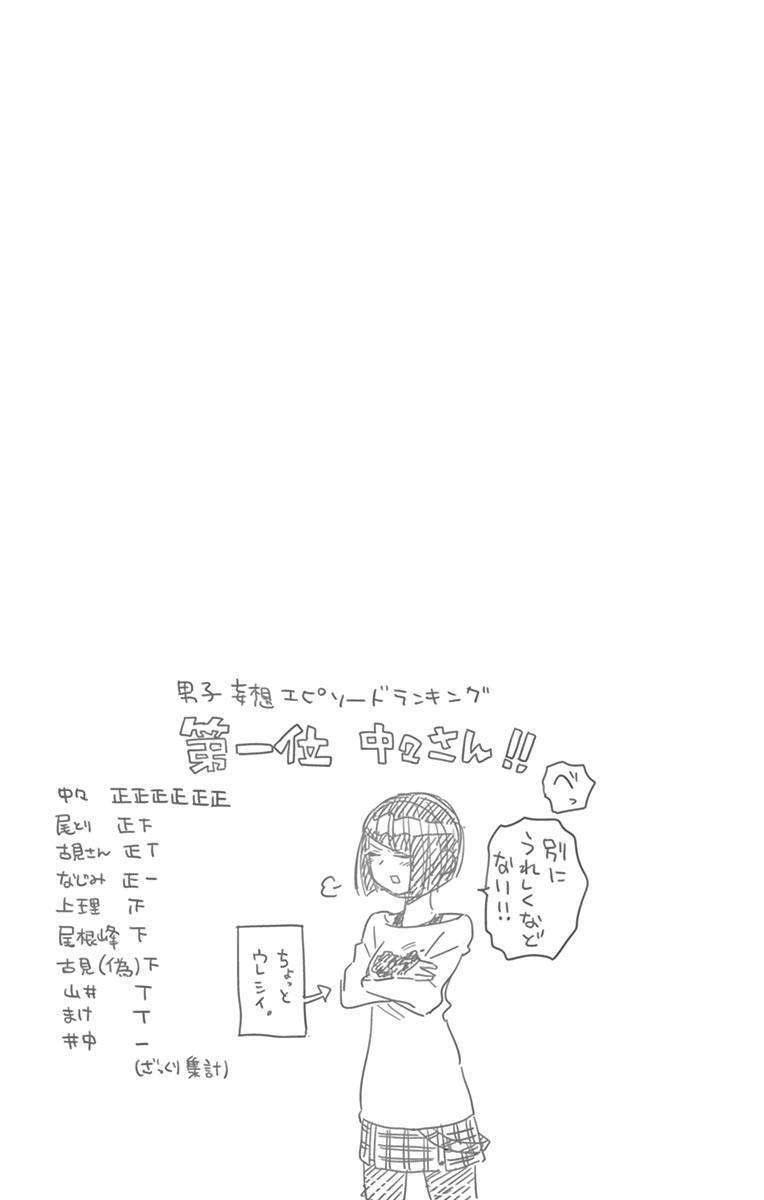 男子 妄想 エピソードランキング
第一位 中々さん!!
べっ
別に
うれしくなど
ない!!
ちょっと
ウレシイ。
中々 正正正正正正
尾とり 正下
古見さん 正丅
なじみ 正一
上理 𤴓
尾根峰 下
古見(偽)下
山井 丅
まけ 丅
井中 一
(ざっくり集計)